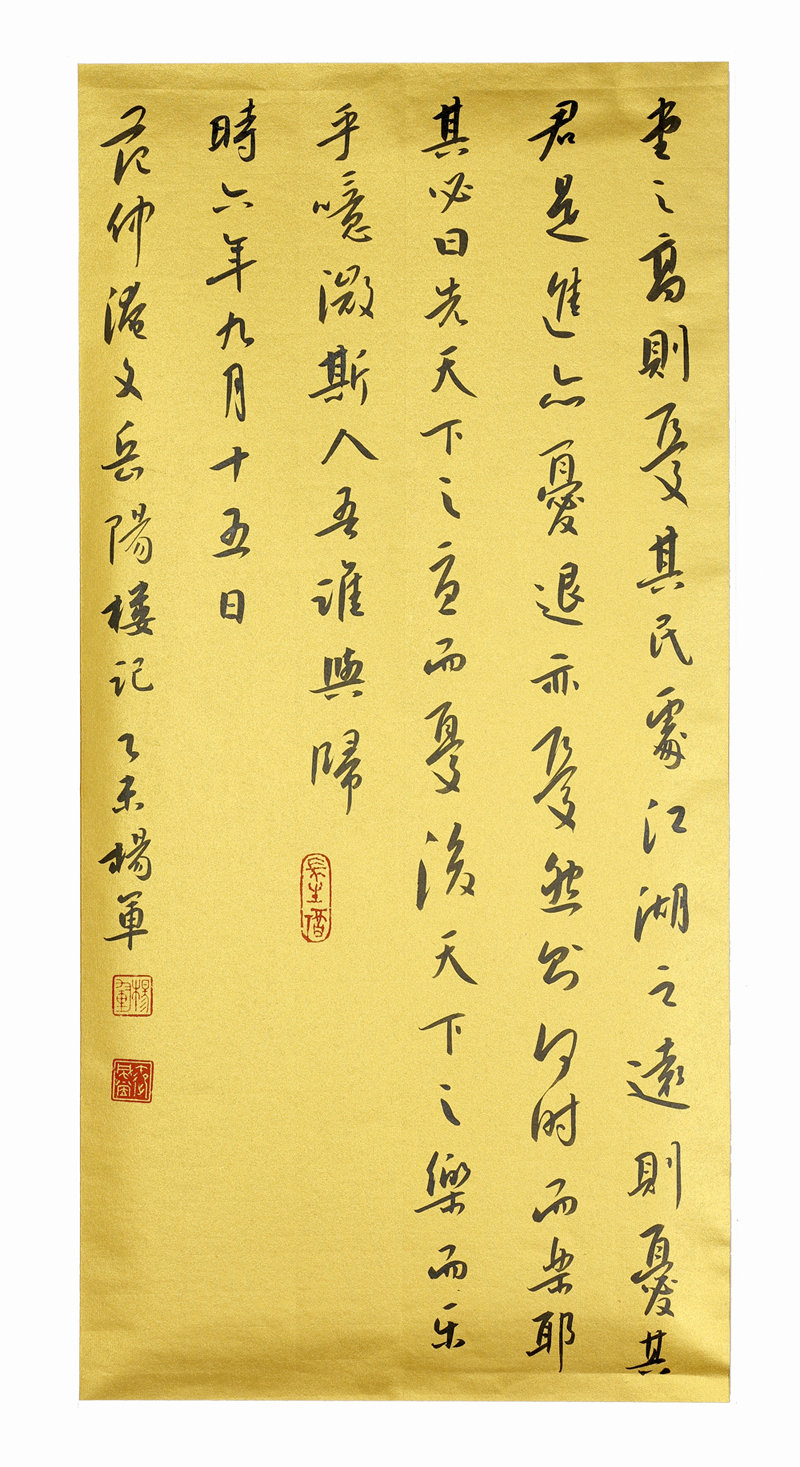 堂之高則憂其民處江湖之遠則憂其
君是進亦憂退亦憂然则何时而樂耶
其必曰先天下之憂而憂後天下之樂而乐
乎噫微斯人吾誰與歸
時六年九月十五日
范仲淹文岳陽楼记 乙未楊軍
長生
楊軍